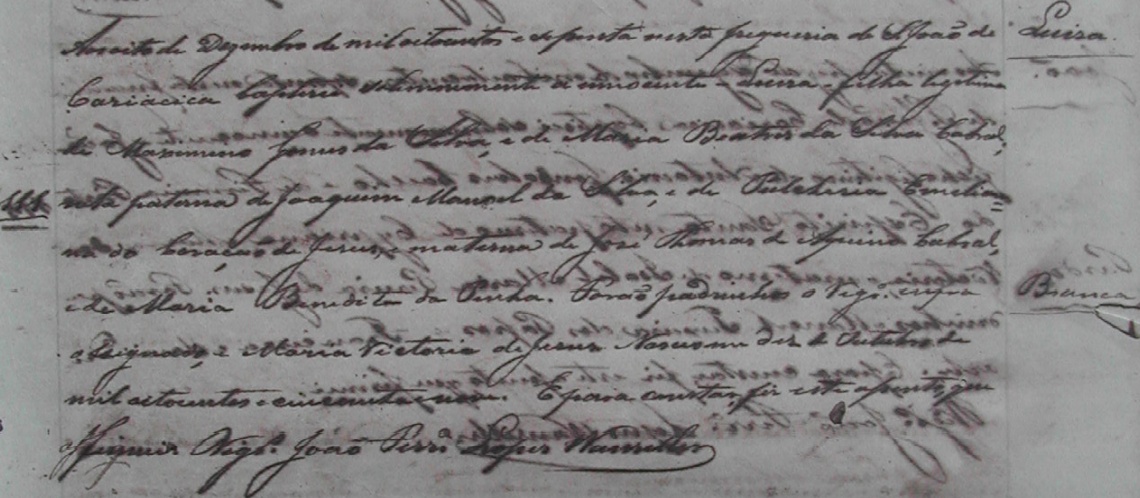 Aos oito de Dezembro de mil oitocentos e sessenta nesta freguesia de S. João de
Luiza.
Cariacica baptisei solemnemente a innocente = Luiza = filha legitima
de Maximino da Silva, e de Maria Beatris da Silva Cabral,
neta paterna de Joaquim Manoel da Silva, e de Pulcheria Emilia=
na do Coração de Jesus, e materna de José Thomas de Aquino Cabral,
e de Maria Benedita da Penha. Forão padrinhos o Vigr.º infra
Branca
assignado, e Maria Victoria de Jesus. Nasceu em dez de Outubro de
mil oitocentos e cincoenta e nove. E para constar fiz este assento, que
assignei. Vigr.º João Lopes